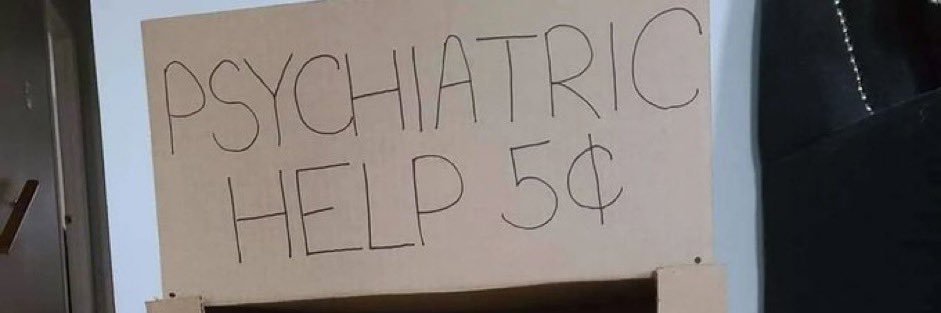 PSYCHIATRIC
HELP 5¢